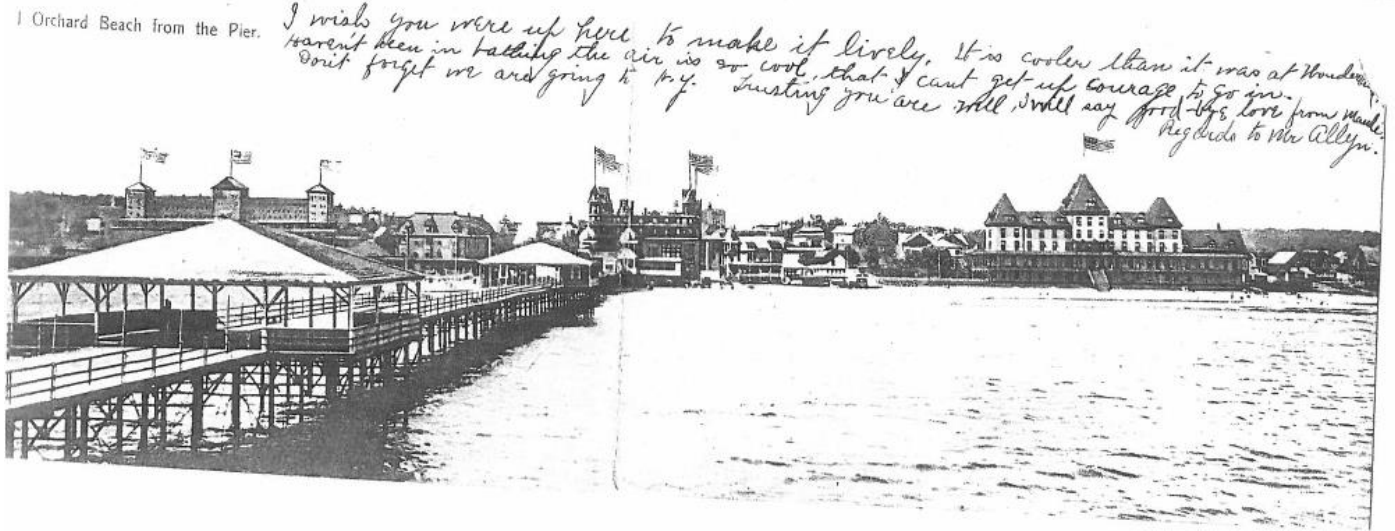 Orchard Beach from the Pier.
I wish you were up here to make it lively. It is cooler than it was at
Haven't been in bathing the air is so cool, that I cant get up courage to go in.
Don't forget we are going to try. Trusting you are well, I will say good-bye love from Maude.
Regards to Mr Allyn.